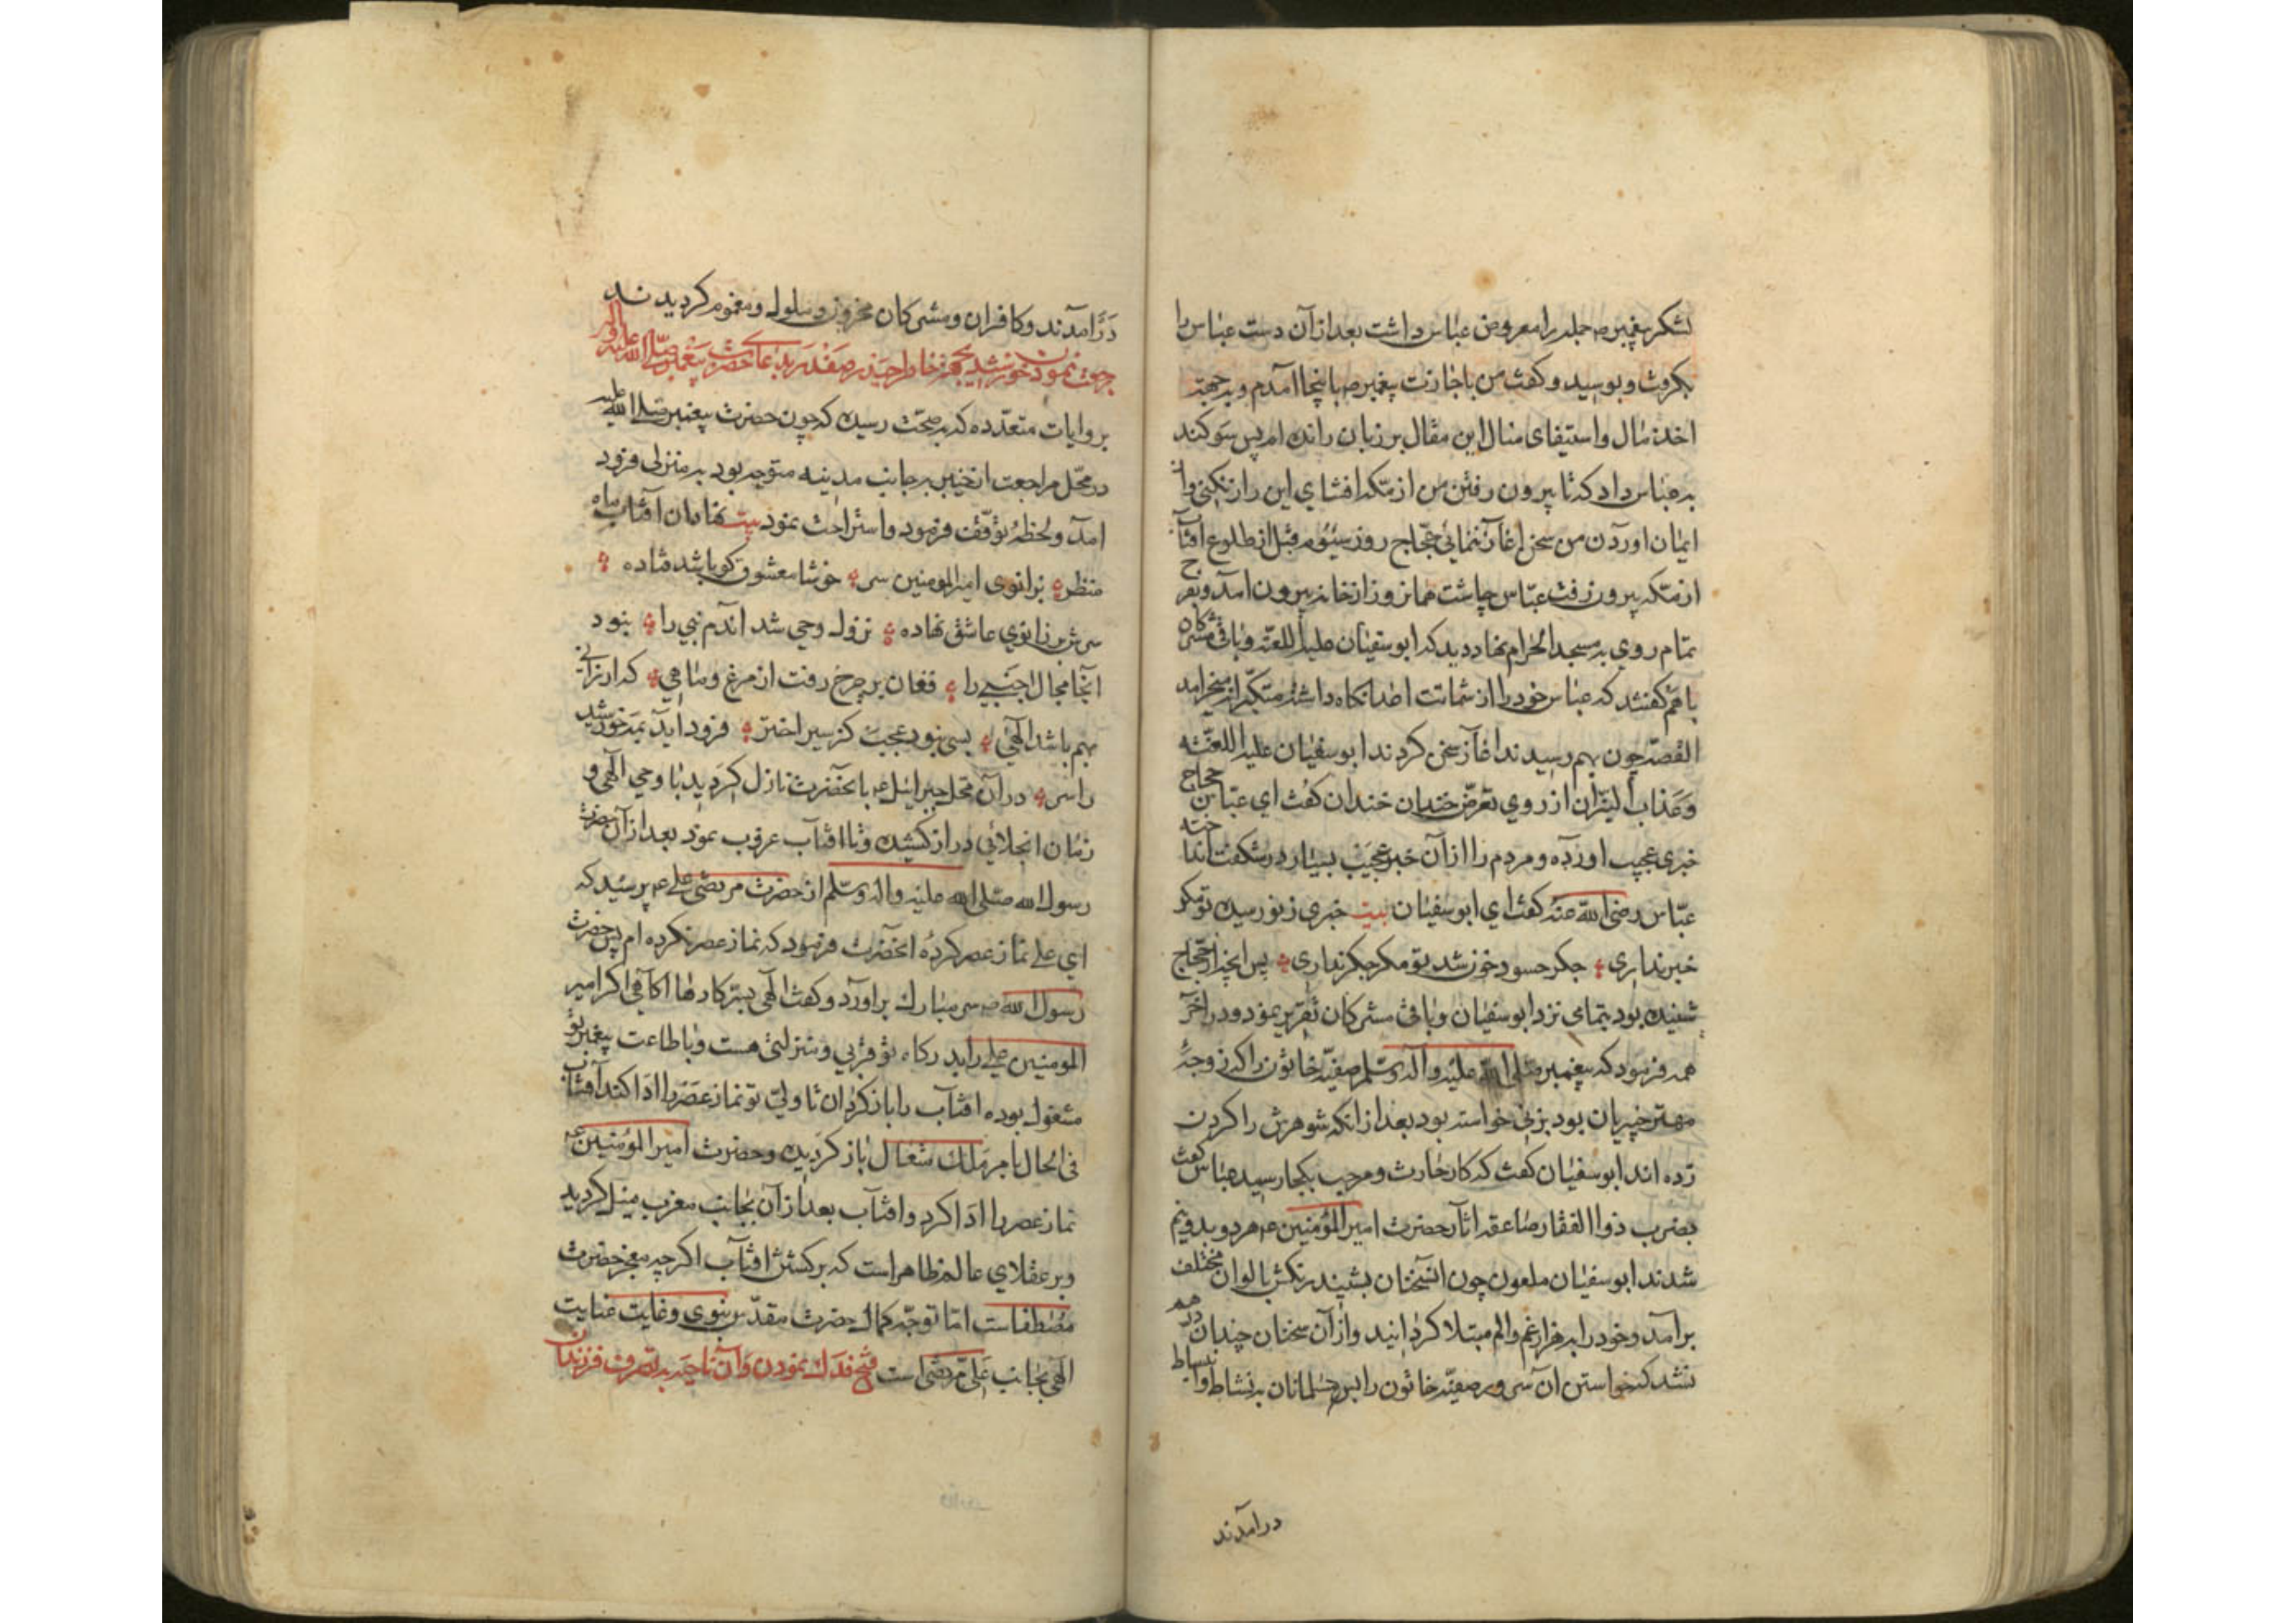 لشکر پیغمبر صه جمله را معروض عباس داشت بعد از آن دست عباس را
بکرفت و بوسید و کفت من باجازت پیغمبر صه باینجا آمدم و بجهة
اخذ مال و استیفای منال این مقال بر زبان رانده ام پس سوکند
به عباس داد که تا بیرون رفتن من از مکه افشای این راز نکنی و از
ایمان اوردن من سخن اغاز ننمائی حجاج روز سیوم قبل از طلوع افتاب
از مکه بیرون رفت عباس چاشت همان روز از خانه بیرون امد و بفرح
تمام روی به مسجد الحرام نهاد دید که ابوسفیان علیه اللعنه و باقی مشرکان
باهم کفتند که عباس خود را از شماتت اعدا نکاه داشته متکبرانه میخرامد
القصه چون بهم رسیدند اغاز سخن کردند ابوسفیان علیه اللعنه
و عذاب النیران از روی تعرض خندان خندان کفت ای عباس حجاج
خبری عجیب اورده و مردم را از آن خبر عجیب بسیار در شکفت انداخته
عباس رضی الله عنه کفت ای ابوسفیان بیت خبری ز نو رسیده تو مکر
خبر نداری جکر حسود خون شد تو مکر جکر نداری پس انچه از حجاج
شنیده بود بتمامی نزد ابوسفیان و باقی مشرکان تقریر نمود و در اخر
همه فرمود که پیغمبر صلی الله علیه و آله وسلم صفیه خاتون را که زوجهٔ
مهتر خیبریان بود بزنی خواسته بود بعد از انکه شوهرش را کردن
زده اند ابوسفیان کفت که کار حارث و مرحب بکجا رسید عباس کفت
بضرب ذوالفقار صاعقه اثار حضرت امیر المؤمنین عه هر دو بدو نیم
شدند ابوسفیان ملعون چون انسخنان بشنید رنکش بالوان مختلف
برآمد و خود را به هزار غم و الم مبتلا کردانید و از آن سخنان چندان درهم
نشد که خواستن ان سرور صفیه خاتون را پس مسلمانان به نشاط و انبساط
درآمدند
درآمدند و کافران و مشرکان محزون و ملول و مغموم کردیدند
رجعت نمودن خورشید بجهة خاطر حیدر صفدر بدعای حضرت پیغمبر صلی الله علیه واله
بروایات متعدده که بصحت رسیده که چون حضرت پیغمبر صلی الله علیه
در محل مراجعت از خیبر بر جانب مدینه متوجه بود به منزلی فرود
امد و لحظهٔ توقف فرمود و استراحت نمود بیت نهاد ان آفتاب ماه
منظر بزانوی امیرالمومنین سر خوشا معشوق کو باشد فتاده
سرش بر زانوی عاشق نهاده نزول وحی شد اندم نبی را نبود
انجا مجال اجنبی را فغان بر چرخ رفت از مرغ و ماهی که ارزانی
بهم باشد الهی بسی نبود عجب کز سیر اختر فرود آید بمه خورشید
را سر در آن محل جبرائیل عه بانحضرت نازل کردید با وحی الهی و
زمان انجلائی دراز کشیده و تا افتاب غروب نمود بعد از آن حضرت
رسول الله صلی الله علیه واله وسلم از حضرت مرتضی علی عه پرسید که
ای علی نماز عصر کردهٔ انحضرت فرمود که نماز عصر نکرده ام پس حضرت
رسول الله صه سر مبارک براورد و کفت الهی بسرکارها اکاهی اکر امیر
المومنین علی را بدرکاه تو قربی و منزلتی هست و باطاعت پیغمبر تو
مشغول بوده افتاب را باز کردان تا ولی تو نماز عصر را ادا کند آفتاب
فی الحال بامر ملک متعال باز کردیده و حضرت امیر المؤمنین عه
نماز عصر را ادا کرد و افتاب بعد از آن بجانب مغرب میل کردید
و بر عقلای عالم ظاهر است که برکشتن افتاب اکرچه معجز حضرت
مصطفاست اما توجه کمال حضرت مقدس نبوی و غایت عنایت
الهی بجانب علی مرتضی است فتح فدک نمودن و آن ناحیه به تصرف فرزندان